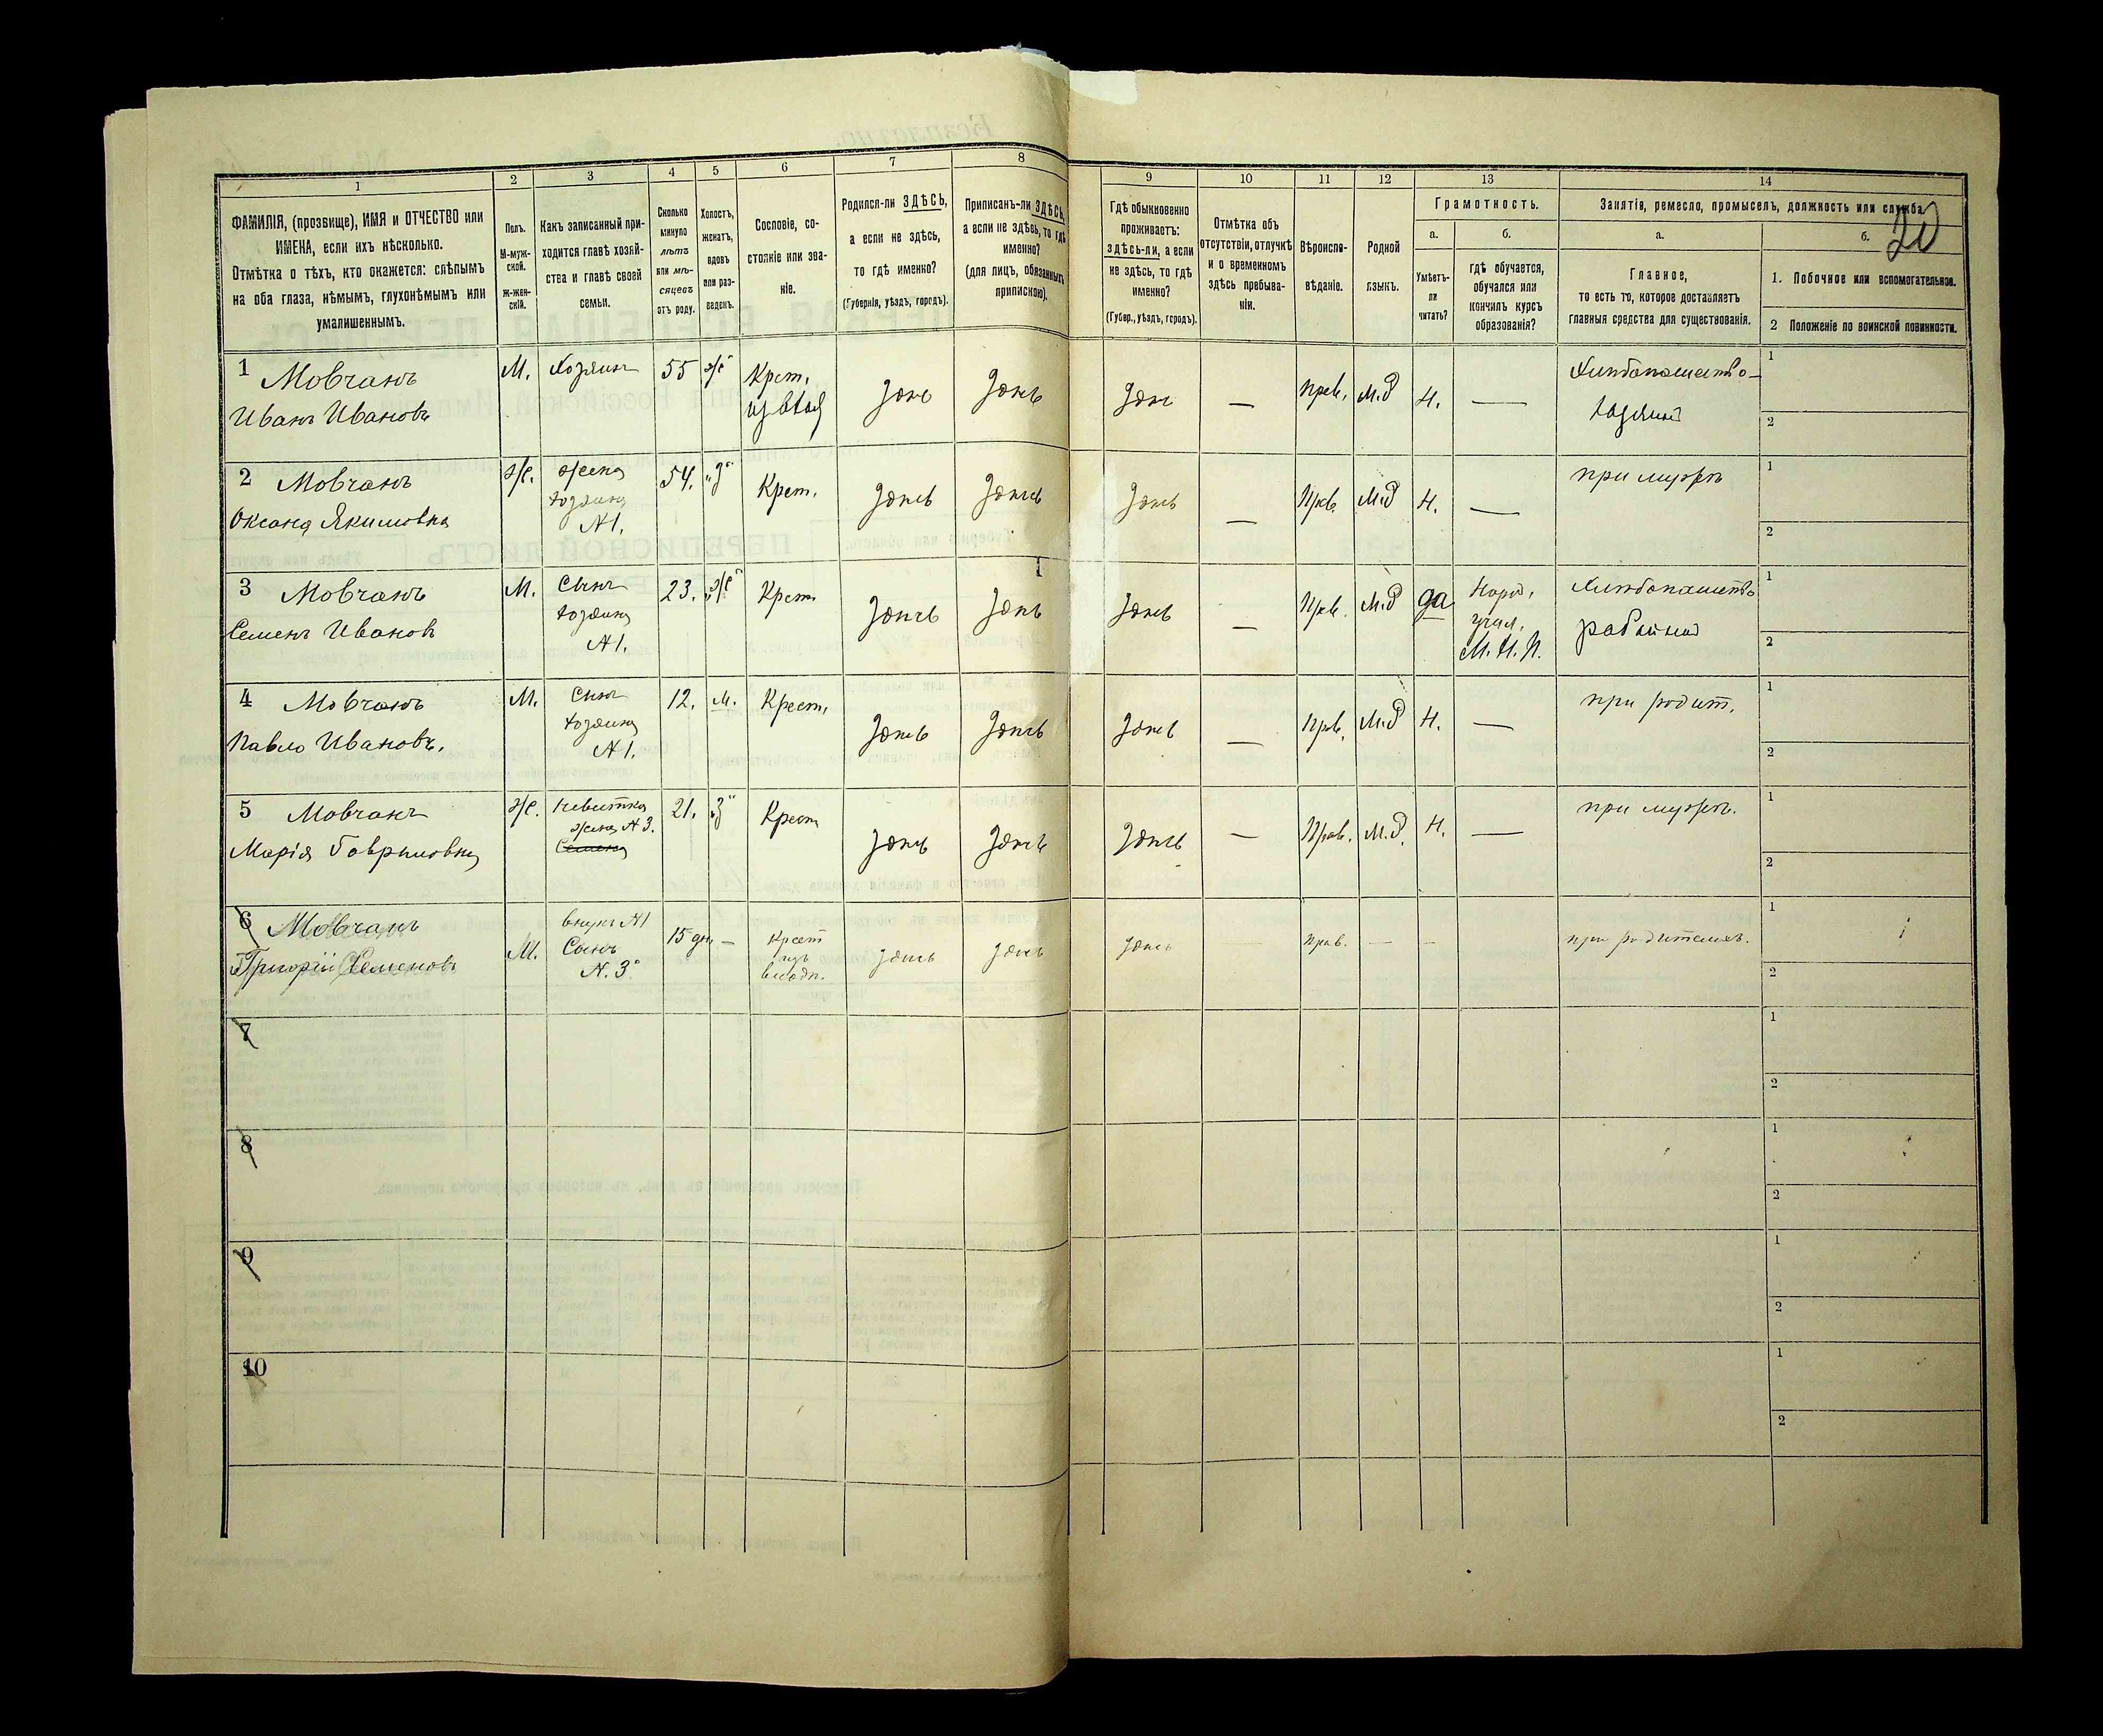 20
1 2 3 4 5 6 7 8 9 10 11 12 13 14
ФАМИЛІЯ, (прозвище), ИМЯ и ОТЧЕСТВО или
ИМЕНА, если ихъ нѣсколько.
Отмѣтка о тѣхъ, кто окажется: слѣпымъ
на оба глаза, нѣмымъ, глухонѣмымъ или
умалишеннымъ.
Полъ.
М-муж-
ской.
Ж-жен-
скій.
Какъ записанный при-
ходится главѣ хозяй-
ства и главѣ своей
семьи.
Сколько
минуло
лѣтъ
или мѣ-
сяцевъ
отъ роду.
Холостъ,
женатъ,
вдовъ
или раз-
веденъ.
Сословіе, со-
стояніе или зва-
ніе.
Родился-ли ЗДѢСЬ,
а если не здѣсь,
то гдѣ именно?
(Губернія, уѣздъ, городъ).
Приписанъ-ли ЗДѢСЬ,
а если не здѣсь, то гдѣ
именно?
(для лицъ, обязанныхъ
припискою).
Гдѣ обыкновенно
проживаетъ:
здѣсь-ли, а если
не здѣсь, то гдѣ
именно?
(Губер., уѣздъ, городъ).
Отмѣтка объ
отсутствіи, отлучкѣ
и о временномъ
здѣсь пребыва-
ніи.
Вѣроиспо-
вѣданіе.
Родной
языкъ.
Грамотность.
а.
Умѣетъ-
ли
читать?
б.
гдѣ обучается,
обучался или
кончилъ курсъ
образованія?
Занятія, ремесло, промыселъ, должность или служба.
а.
Главное,
то есть то, которое доставляетъ
главныя средства для существованія.
б.
1. Побочное или вспомогательное.
2 Положеніе по воинской повинности.
1 Мовчанъ
Иванъ Ивановъ
М. Хозяинъ 55 ж Крест. здѣсь здѣсь здѣсь — Прав. М.д Н. — Хлѣбопашество-
хозяинъ
1
2
2 Мовчанъ
Оксана Якимовна
Ж. жена
хозяина
N1.
54. "З" Крест. здѣсь здѣсь здѣсь — Прав. М.д Н. — при мужѣ
1
2
3 Мовчанъ
Семенъ Ивановъ
М. Сынъ
хозяина
N1.
23. "ж" Крест. здѣсь здѣсь здѣсь — Прав. М.д да Народ.
учил.
М.Н.П.
Хлѣбопашество
работникъ
1
2
4 Мовчанъ
Павло Ивановъ.
М. Сынъ
хозяина
N1.
12. М. Крест. здѣсь здѣсь здѣсь — Прав. М.д Н. — при родит.
1
2
5 Мовчанъ
Марія Гавриловна
Ж. Невѣстка
жена N3.
Семена
21. "З" Крест здѣсь здѣсь здѣсь — Прав. М.д. Н. — при мужѣ.
1
2
6 Мовчанъ
Григорій Семеновъ
М. внукъ N1
Сынъ
N.3"
15 дн. — Крест
изъ
владѣл.
здѣсь здѣсь здѣсь — Прав. — — при родителяхъ.
1
2
7
1
2
8
1
2
9
1
2
10
1
2